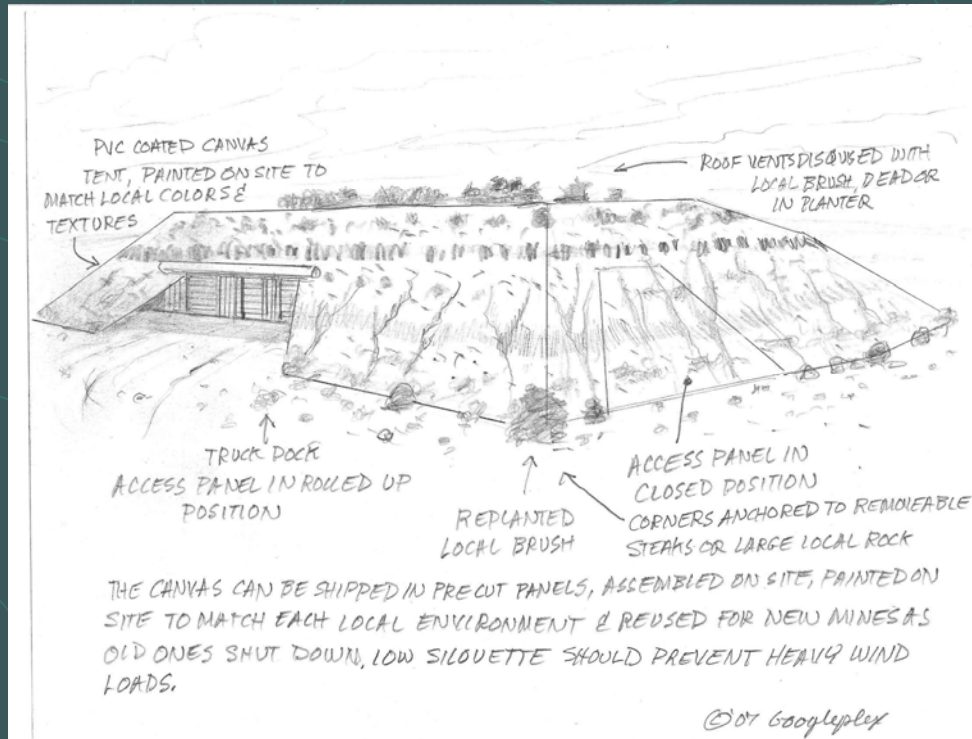 PVC COATED CANVAS
TENT, PAINTED ON SITE TO
MATCH LOCAL COLORS &
TEXTURES
ROOF VENTS DISQUSED WITH
LOCAL BRUSH, DEAD OR
IN PLANTER
TRUCK DOCK
ACCESS PANEL IN ROLLED UP
POSITION
REPLANTED
LOCAL BRUSH
ACCESS PANEL IN
CLOSED POSITION
CORNERS ANCHORED TO REMOVEABLE
STEAKS OR LARGE LOCAL ROCK
THE CANVAS CAN BE SHIPPED IN PRECUT PANELS, ASSEMBLED ON SITE, PAINTED ON
SITE TO MATCH EACH LOCAL ENVIRONMENT & REUSED FOR NEW MINES AS
OLD ONES SHUT DOWN, LOW SILOUETTE SHOULD PREVENT HEAVY WIND
LOADS.
©'07 Googleplex